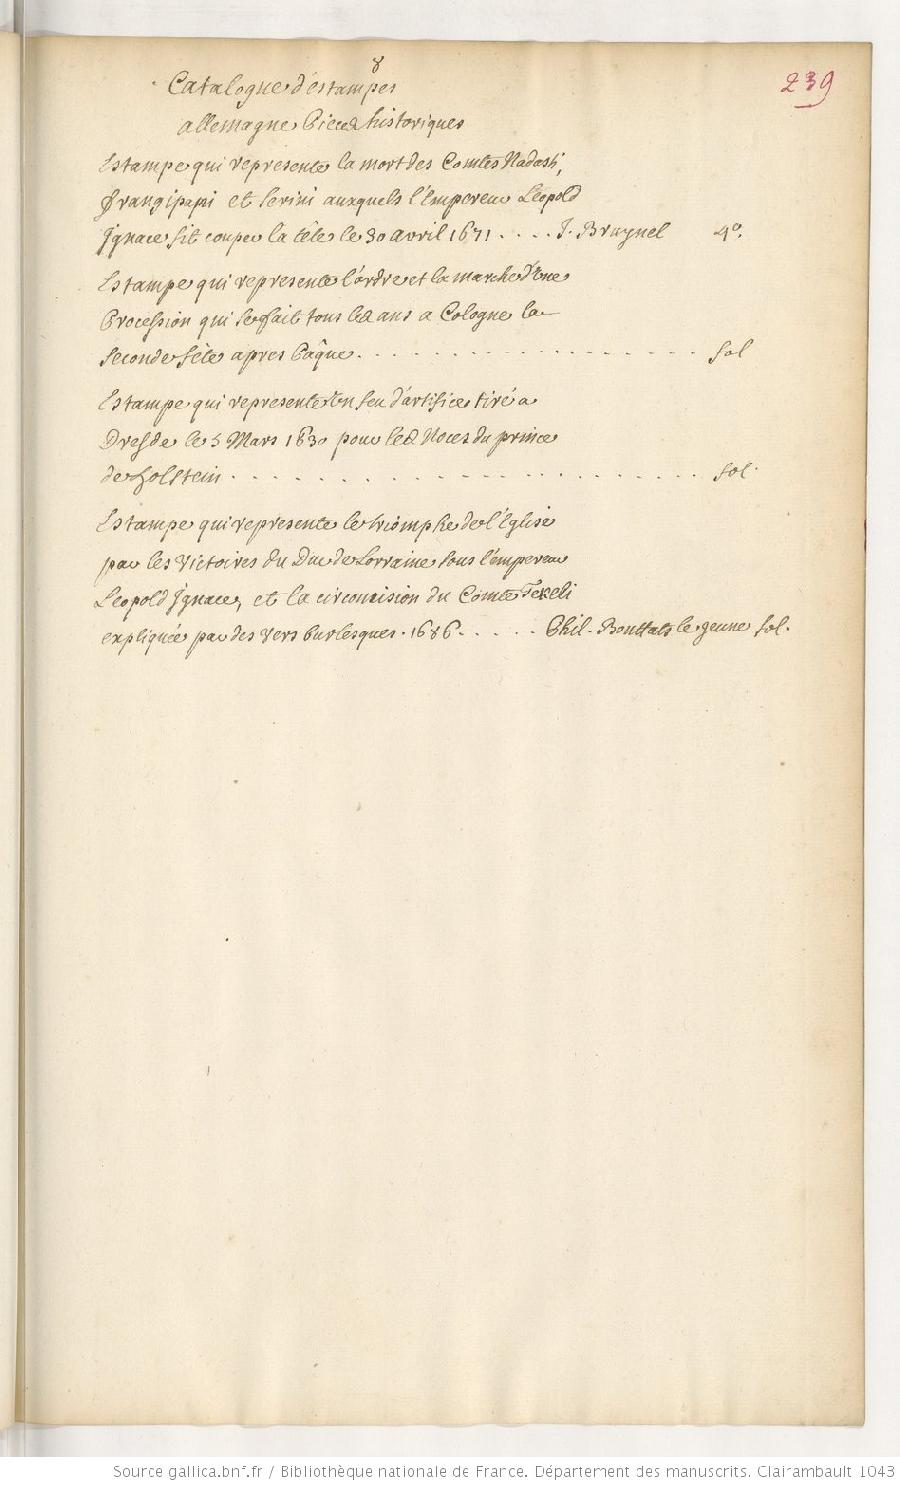 8
239
Catalogue d'estampes
allemagne Pieces historiques
Estampe qui represente la mort des Comtes Nadasti,
Frangipani et Serini auxquels l'Empereur Leopold
Ignace fit couper la tête le 30 avril 1671 . . . . J. Bruynel 4°.
Estampe qui represente l'ordre et la marche d'une
Procession qui se fait tous les ans a Cologne la
seconde fête apres Pâque . . . . . . . . . . . . . . . . . . fol
Estampe qui represente un feu d'artifice tiré a
Dresde le 5 Mars 1630 pour les Noces du prince
de holstein . . . . . . . . . . . . . . . . . . fol.
Estampe qui represente le triomphe de l'Eglise
par les victoires du Duc de Lorraine sous l'empereur
Leopold Ignace, et la circoncision du Comte Tekeli
expliquée par des vers burlesques . 1686 . . . . . Phil. Bouttats le jeune fol.
Source gallica.bnf.fr / Bibliothèque nationale de France. Département des manuscrits. Clairambault 1043